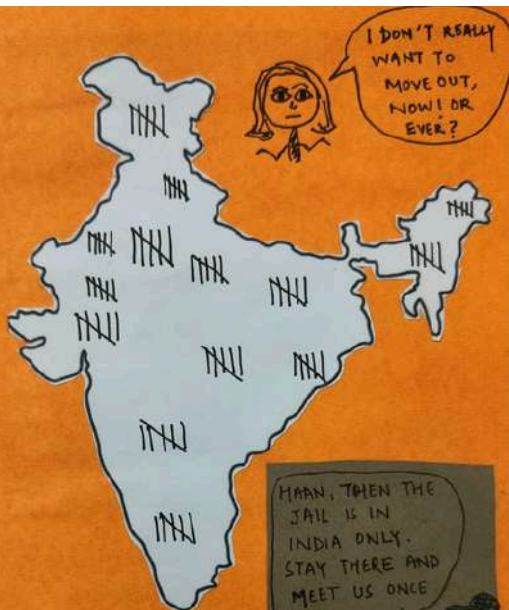 I DON'T REALLY
WANT TO
MOVE OUT,
NOW! OR
EVER?
HAAN, THEN THE
JAIL IS IN
INDIA ONLY.
STAY THERE AND
MEET US ONCE